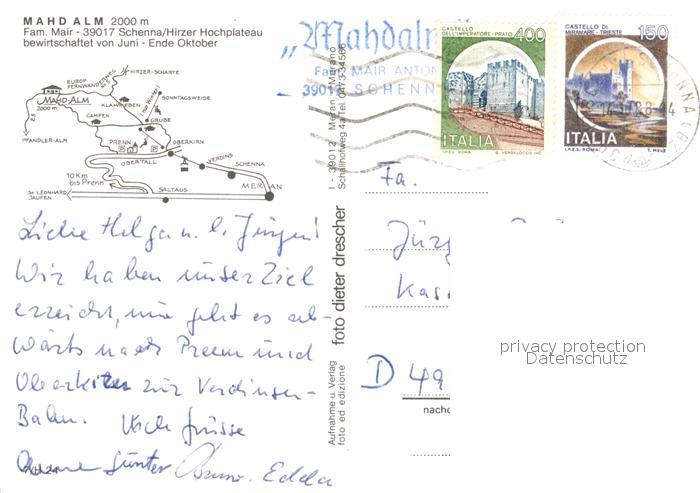 MAHD ALM 2000 m
Fam. Mair - 39017 Schenna/Hirzer Hochplateau
bewirtschaftet von Juni - Ende Oktober
HIRZER-SCHARTE
EUROP.
FERNWANDERWEG
MAHD-ALM
2000 m
E5
KLAMMEBEN
SONNTAGSWEIDE
GAMPEN
GRUBE
PFANDLER-ALM
PRENN
OBERKIRN
OBERTALL
VERDINS
SCHENNA
10 Km
bis Prenn
MERAN
St. LEONHARD
JAUFEN
SALTAUS
Liebe Helga u. l. Jürgen!
Wir haben unser Ziel
erreicht, nun geht es ab-
wärts nach Prenn und
Oberkirn zur Verdinser-
Bahn. Herzl. Grüsse
Günter Bruno. Edda
VH 24
I - 39012 Meran - Merano
Schallhofweg 4a/Tel. 0473-34566
foto dieter drescher
Aufnahme u. Verlag
foto ed edizione
„Mahdalm
Fam. MAIR ANTON
39017 SCHENNA
CASTELLO
DELL'IMPERATORE - PRATO
400
ITALIA
I.P.Z.S. ROMA
CASTELLO DI
MIRAMARE - TRIESTE
150
ITALIA
I.P.Z.S. ROMA
T. MELE
Fa.
D 49
privacy protection
Datenschutz